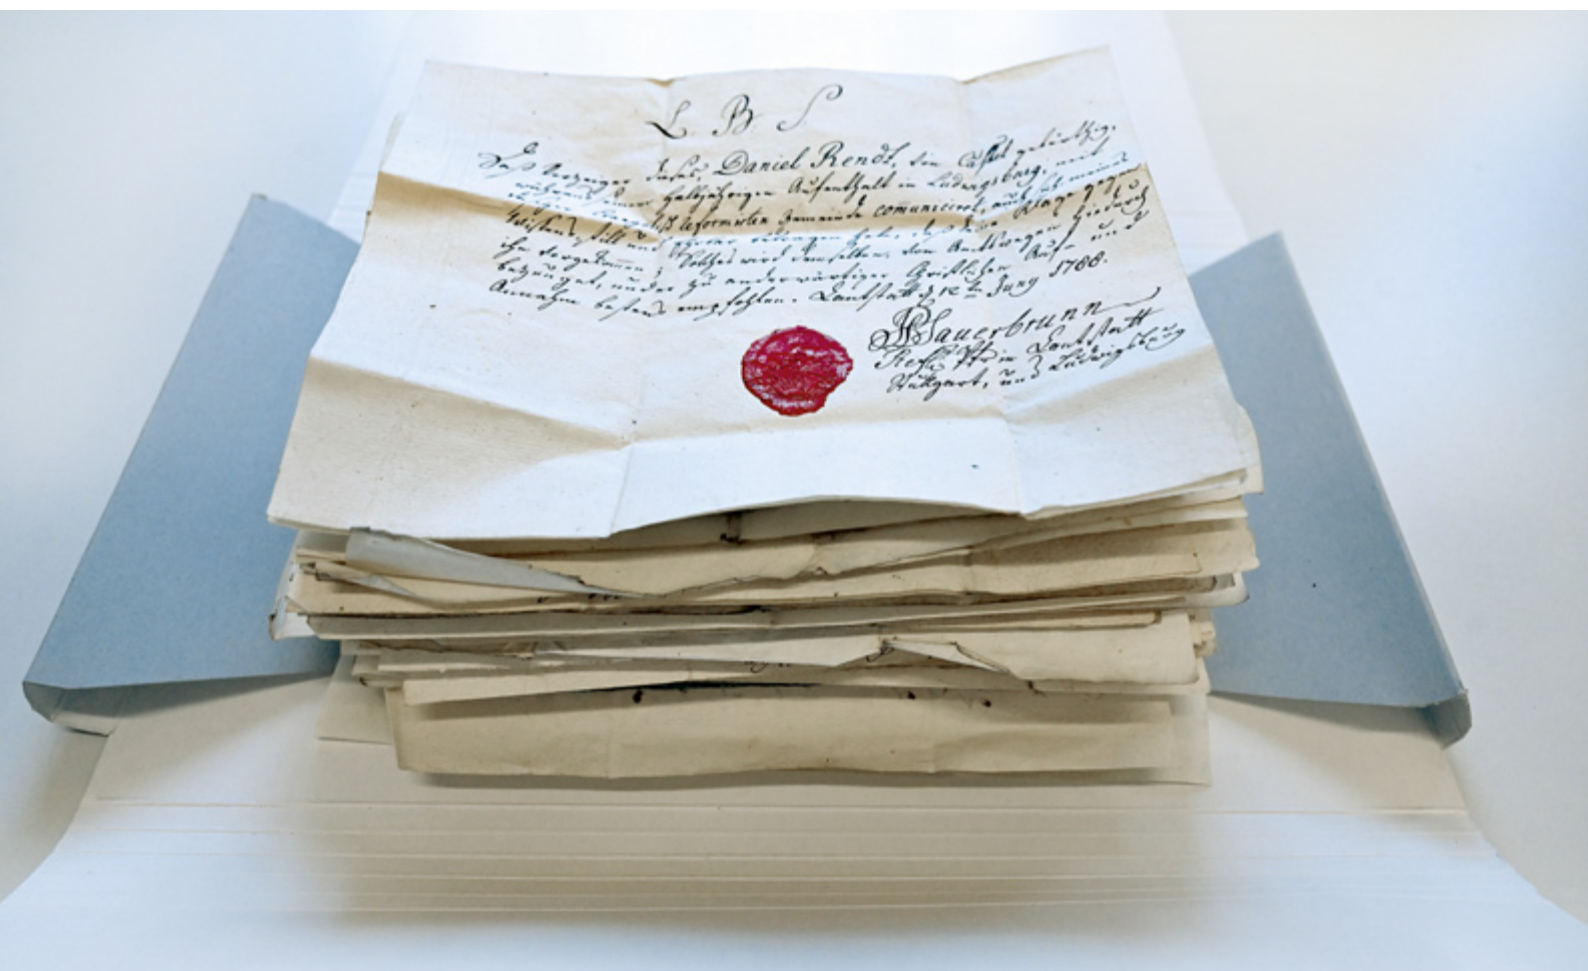 L. B. S.
Daß Vorzeiger dieses, Daniel Rendt, von Caßel gebürthig,
während einer halbjährigen Aufenthalt in Ludwigsburg, mit
reformirten Gemeinde communicirt, auch sich meines
Wissens still und betragen habe, daß keine Klage gegen
ihn vorgekommen; Solches wird demselben, von Amtswegen hiedurch
bezeuget, und er zu anderwärtiger Christlichen Auf- und
Annahme bestens empfohlen. Canstatt d. 12ten Juny 1788.
Sauerbrunn
Ref. Pfr in Canstatt
Stuttgart, und Ludwigsburg